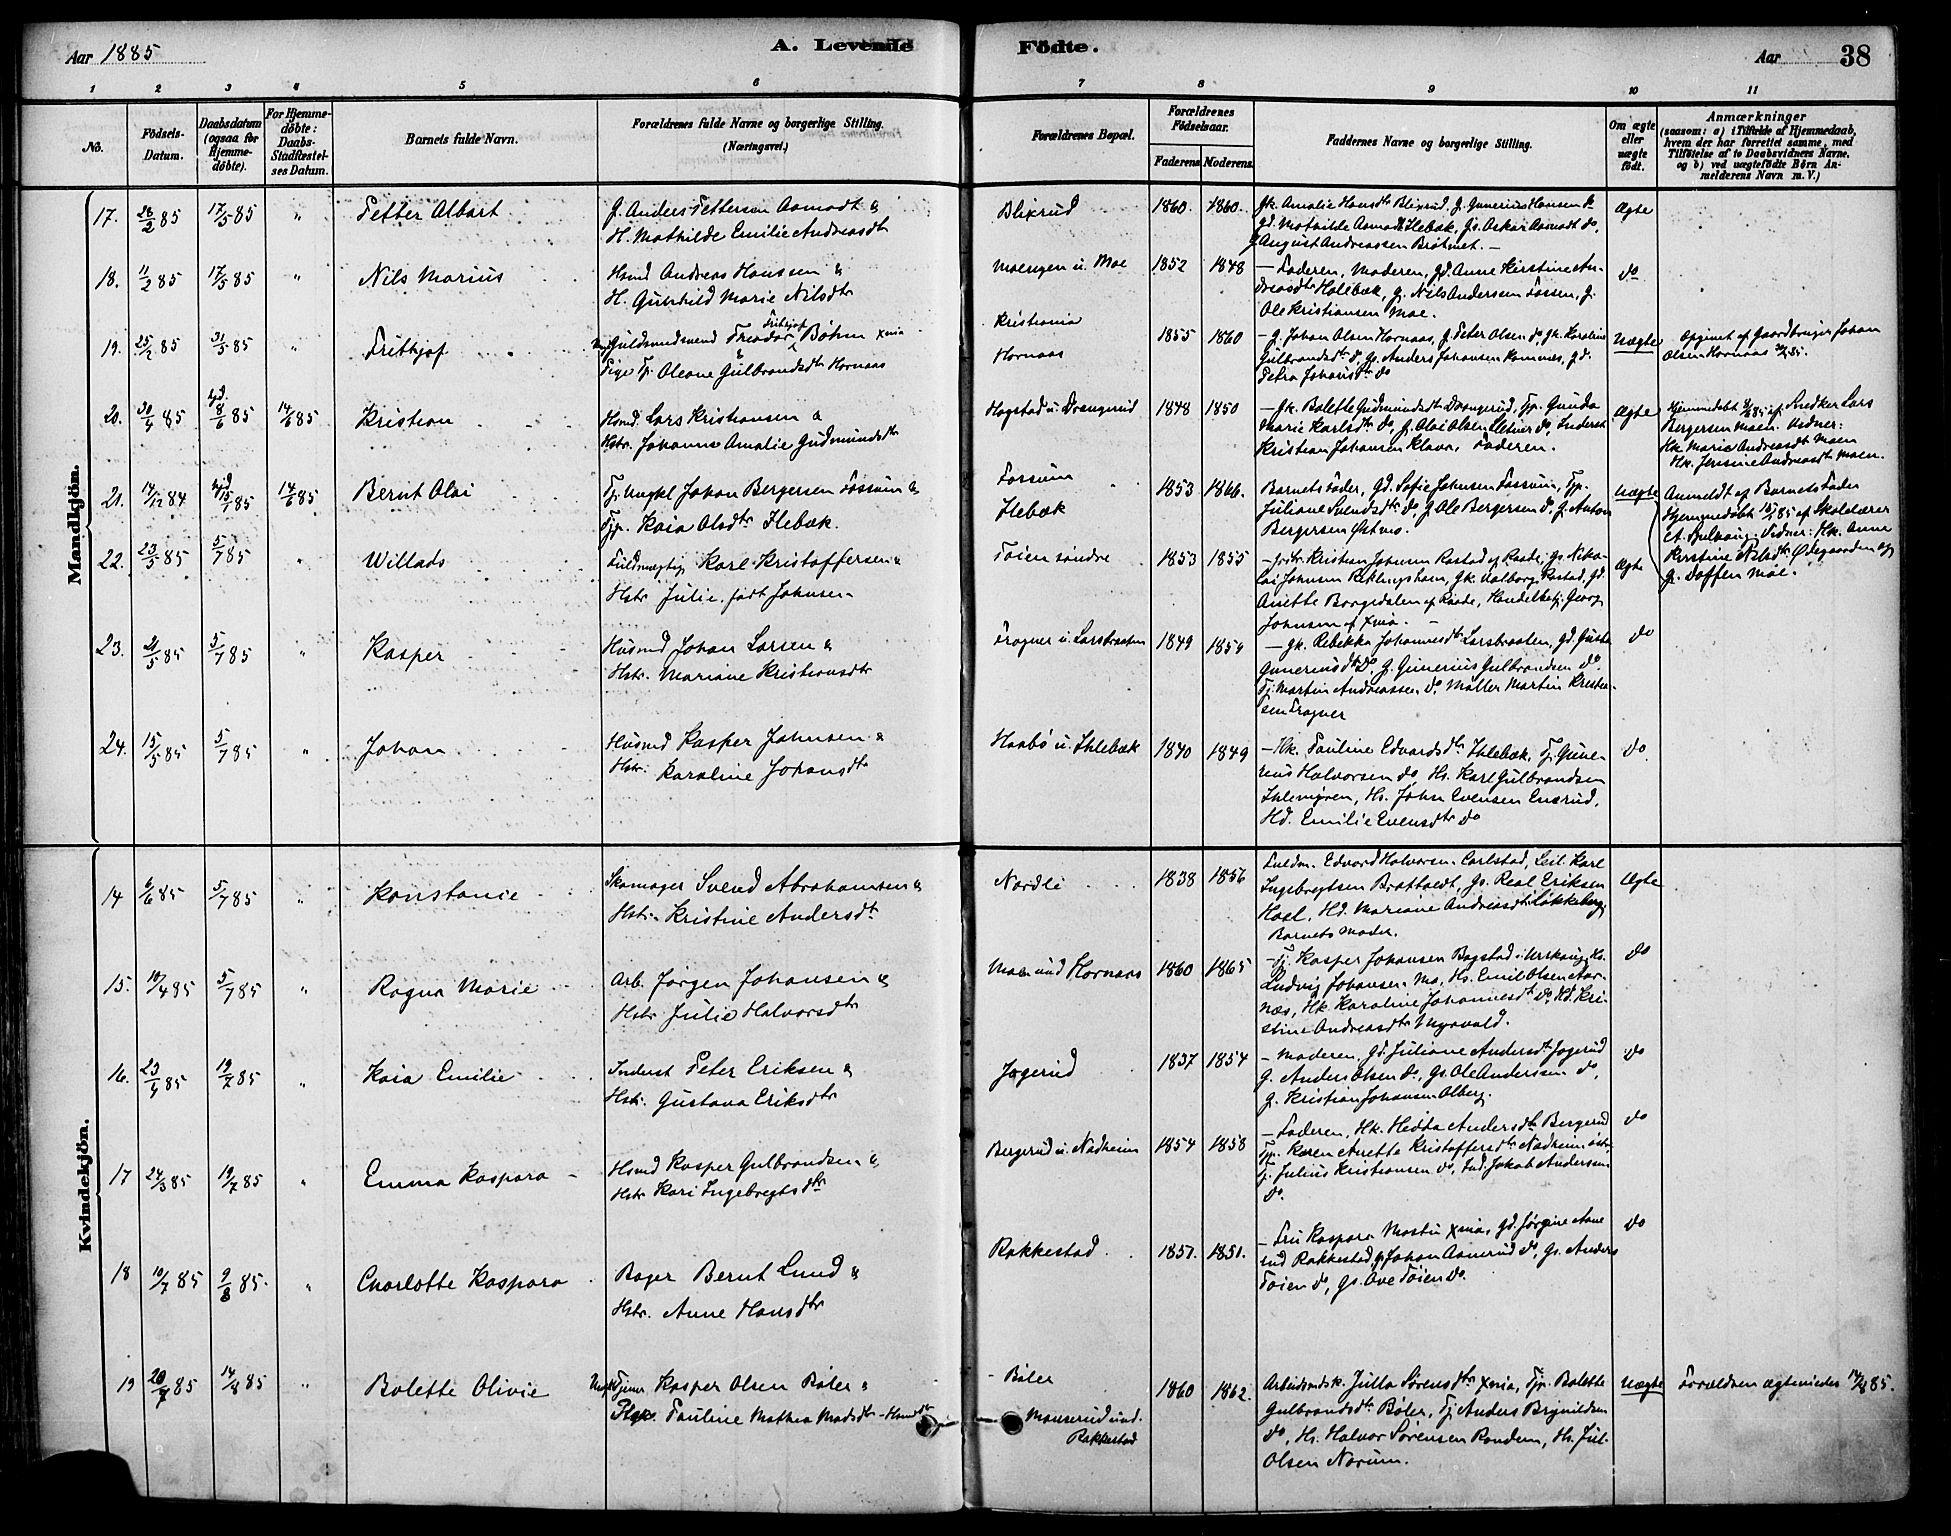 Aar 1885
A. Levende
Födte.
Aar 38
1 2 3 4 5 6 7 8 9 10 11
No.
Födsels-Datum.
Daabsdatum (ogsaa for Hjemme-döbte).
For Hjemme-döbte: Daabs-Stadfæstel-ses Datum.
Barnets fulde Navn.
Forældrenes fulde Navne og borgerlige Stilling.
(Næringsvei.)
Forældrenes Bopæl.
Forældrenes Födselsaar.
Faderens Moderens
Faddernes Navne og borgerlige Stilling.
Om ægte eller uægte födt.
Anmærkninger
(saasom: a) i Tilfælde af Hjemmedaab, hvem der har forrettet samme, med Tilföielse af to Daabsvidners Navne, og b) ved uægtefödte Börn An-melderens Navn m. V.)
Mandkjön.
17. 26/2 85 17/5 85 " Petter Albart
G. Anders Pettersen Aamodt &
H. Mathilde Emilie Andreasdtr
Blixrud 1860. 1860.
Gk. Amalie Hansdtr Blixrud, G. Gunerius Hansen do
gd. Mathilde Aamodt Ilebæk, Gs. Oskar Aamodt do,
G. August Andreassen Bråtnet. —
Ægte
18. 11/2 85 17/5 85 " Nils Marius
Hsmd Andreas Hanssen &
H. Gunhild Marie Nilsdtr
Moengen u. Moe 1852 1848
— Faderen, Moderen, gd. Anne Kirstine An-
dreasdtr Holebæk, g. Nils Andersen Fossen, g.
Ole Kristiansen Moe.
do
19. 25/2 85 31/5 85 " Frithjof
Guldsmedsvend Theodor Frithjof Böhm Xnia
&
Pige Tj. Oleane Gulbrandsdtr Hornaas
Kristiania
Hornaas
1855 1860
— g. Johan Olsen Hornaas, g. Peter Olsen do, gk. Karoline
Gulbrandsdtr do, Gs. Anders Johansen Kamnes, gd.
Petra Johansdtr do
Uægte
Opgivet af Gaardbruger Johan
Olsen Hornaas
20. 30/4 85 hjd. 8/6 85 14/6 85 Kristian
Hsmd. Lars Kristiansen &
Hstr. Johanne Amalie Gudmundsdtr
Hagstad u. Drangerud 1848 1850
— Gk. Bolette Gudmundsdtr Drangerud, Tjp. Gunda
Marie Karlsdtr do, g. Olai Olsen do, Inderst
Kristian Johansen Klava, Faderen.
Ægte
Hjemmedøbt 8/6 85 af Snedker Lars
Bergersen Moen. Vidner:
Hk. Marie Andreasdtr Moen
Hk. Jensine Andreasdtr Moen.
21. 14/12 84 hjd 15/1 85 14/6 85 Bernt Olai
Tj. Ungkl Johan Bergersen Fossum &
Tjp. Kaia Olsdtr Ilebæk.
Fossum
Ilebæk
1853 1866.
Barnets Fader, Gd. Sofie Johnsen Fossum, Tjp.
Juliane Svendsdtr do, G. Ole Bergersen do, G. Anton
Bergersen Østmo.
Uægte
Anmeldt af Barnets Fader
Hjemmedøbt 15/1 85 af Skolelærer
Vidner: Hk. Anne
Kirstine Nilsdtr Ødegaarden og
G. Doffen Moe.
22. 23/5 85 5/7 85 " Willads
Fuldmægtig Karl Kristoffersen &
Hstr Julie født Johnsen
Töien søndre 1853 1855
— Kristian Johnsen Rostad af Raade, Gs. Niko-
lai Johnsen Gk. Valborg Rostad, Gd.
Anette Borgedalen af Raade, Handelsbetj. Georg
Johnsen af Xnia. —
Ægte
23. 21/5 85 5/7 85 " Kasper
Husmd Johan Larsen &
Hstr. Mariane Kristiansdtr
Frogner u. Larsbraaten 1849 1859
— gk. Rebekka Johannesdtr Larsbraaten, gd. Gusta
Gunneriusdtr do, G. Gunerius Gulbrandsen do.
Tj. Martin Andreassen do, Møller Martin Kristian-
sen Frogner
do
24. 15/5 85 5/7 85 " Johan
Husmd Kasper Johnsen &
Hstr. Karoline Johansdtr
Haabö u. Ihlebæk 1840 1849
— Hk. Pauline Edvardsdtr Ihlebæk, Tj. Gune-
rius Halvorsen do, Hs. Karl Gulbrandsen
Ihlemyren, Hs. John Evensen Enerud,
Hd. Emilie Evensdtr do
do.
Kvindekjön.
14 6/6 85 5/7 85 " Konstanie
Skomager Svend Abrahamsen &
Hstr. Kristine Andersdtr
Nordli 1838 1856
Fuldm. Edvard Halvorsen Carlstad, Leil. Karl
Ingebregtsen Brattaedt, Gs. Real Eriksen
Hoel, Hd. Mariane Andreasdtr Løkkeberg,
Barnets Moder.
Ægte
15. 10/4 85 5/7 85 " Ragna Marie
Arb. Jørgen Johansen &
Hstr Julie Halvorsdtr
Moen und Hornaas 1860 1865
— Tj. Kasper Johansen Bogstad i Urskoug, Hs.
Ludvig Johansen Mo, Hs. Emil Olsen Aar-
næs, Hk. Karoline Johannesdtr do, Hd. Kri-
stine Andreasdtr Myrvold.
do
16. 23/4 85 19/7 85 " Kaia Emilie
Inderst Peter Eriksen &
Hstr. Gustava Eriksdtr
Jogerud 1837 1854
— Moderen, Gd. Juliane Andersdtr Jogerud
G. Anders Olsen do, Gs. Ole Andersen do,
G. Kristian Johansen Olberg.
do
17 24/3 85 19/7 85 " Emma Kaspara
Hsmd Kasper Gulbrandsen &
Hstr Kari Ingebregtsdtr
Bergerud u. Nadheim 1854 1858
— Faderen, Hk. Hedta Andersdtr Bergerud
Tjp. Karen Anette Kristoffersdtr Nadheim østre,
Tj. Julius Kristiansen do, Ind. Jakob Andersen
do.
do
18 10/7 85 9/8 85. " Charlotte Kaspara
Bager Bernt Lund &
Hstr. Anne Hansdtr
Rakkestad 1851. 1851.
— Fru Kaspara Mostu Xnia, Gd. Jørgine Aane
rud Rakkestad, G. Johan Aanerud do, Gs. Anders
Töien do, Gs. Ove Töien do.
do
19 20/7 85 14/8 85 " Bolette Olivie
Ungk. Tjener Kasper Olsen Böler &
Pige. Pauline Mathea Madsdtr
Böler
Monserud und.
Rakkestad
1860 1862.
Arbeidsmdsk. Julla Sørensdtr Xnia, Tjp. Bolette
Gulbrandsdtr Böler, Tj. Anders Brynildsen
do, Hs. Halvor Sørensen Ronden, Hs. Jul-
Olsen Norum.
Uægte
Forældren ægteviedes 14/8 85.